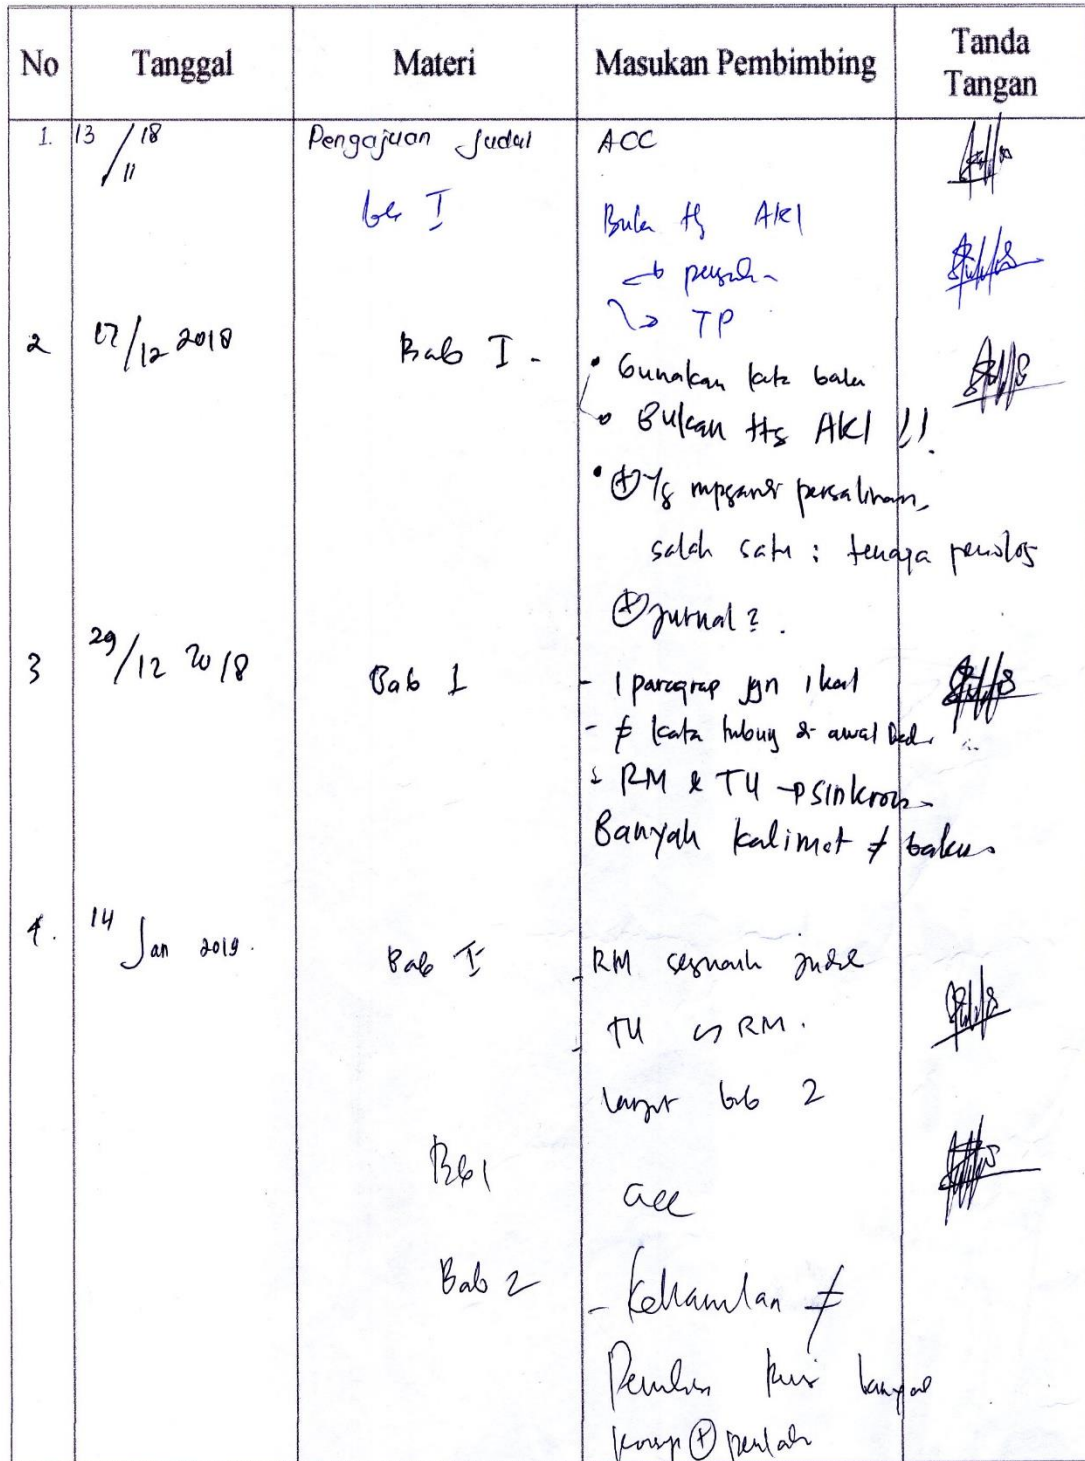 No Tanggal Materi Masukan Pembimbing Tanda Tangan
1. 13/11 18 Pengajuan Judul ACC
bab I AKI
TP
2 17/12 2018 Bab I - • Gunakan kata baku
Bukan ttg AKI !!
• ⊕ Yg persalinan,
salah satu : tenaga penolog
⊕ Jurnal ?.
3 29/12 2018 Bab 1 - 1 paragrap jgn 1 kal
- ≠ kata hubug di awal
- RM & TU → sinkron
Banyak kalimat ≠ baku
4. 14 Jan 2019. Bab I - RM judul
- TU ↔ RM.
lanjut bab 2
Bab 1 acc
Bab 2 - Kehamilan ≠
⊕